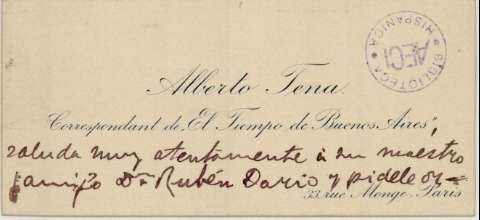 BIBLIOTECA HISPANICA
AECI
Alberto Tena
Correspondant de „El Tiempo de Buenos Aires”,
saluda muy atentamente à su maestro
y amigo Dn Rubén Dario y pidele os=
33, rue Monge, Paris